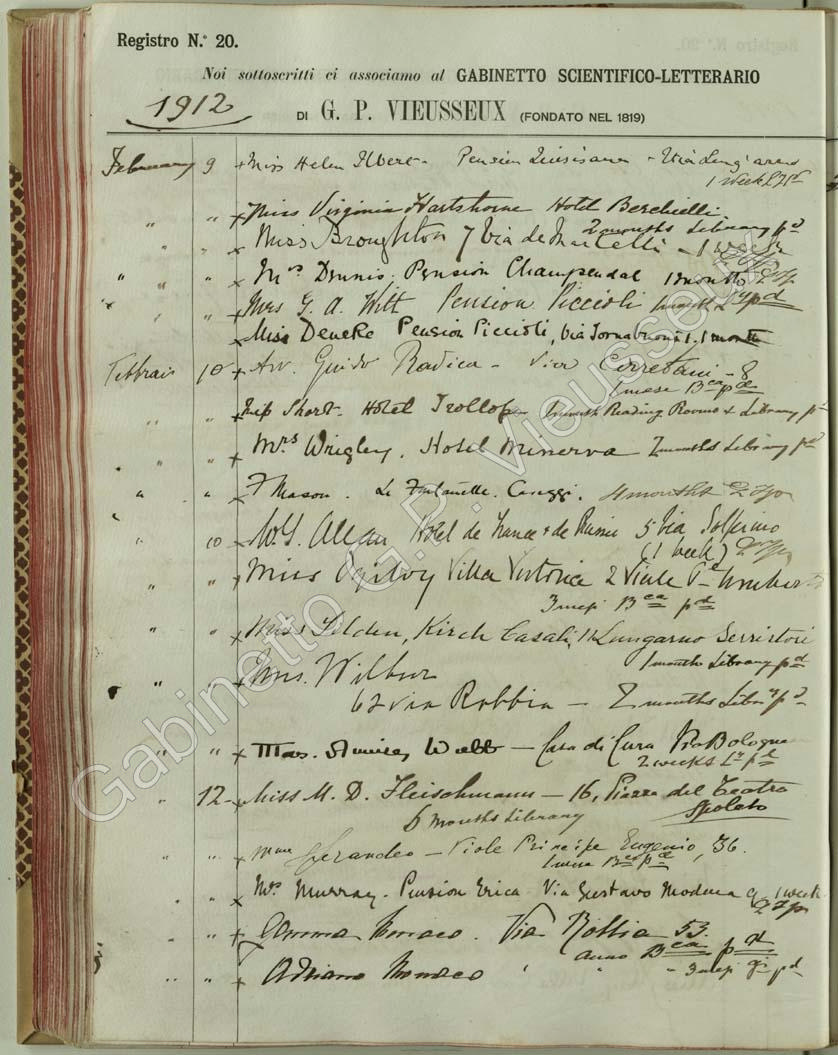 Registro N.° 20.
Noi sottoscritti ci associamo al GABINETTO SCIENTIFICO-LETTERARIO
1912 DI G. P. VIEUSSEUX (FONDATO NEL 1819)
February 9 + Miss Helen Ilbert - Pension Quisisana - Lung'arno
1 week
" " + Miss Virginia Hartshorne Hotel Berchielli
2 months Library pd
" " x Miss Broughton 7 Via de Martelli - 1 week
" " x Mrs Dennis, Pension Champendal 1 month
" " Mrs G. A. Witt Pension Piccioli 1 month pd
x Miss Deneke Pension Piccioli, Via Tornabuoni 1. 1 month
Febbraio 10 + Avv. Guido Radica - Via Cerretani - 8
1 mese Bca pd
" " Miss Short. Hotel Trollope 1 month Reading Rooms & Library pd
" " + Mrs Wrigley. Hotel Minerva - 2 months Library pd
" " F Mason. Le Fontanelle. Careggi. 4 months
" 10 W. S. Allan Hotel de France & de Russie 5 Via Solferino
(1 week)
" " + Miss Ogilvy Villa Vittoria 2 Viale Pe Umberto
3 mesi Bca pd
" " x Miss Selden, Kirch Casali, Lungarno Serristori
1 months Library pd
" " x Mrs. Wilbur
62 via Robbia - 2 months Liby pd
" " + Mrs. Webb - Casa di Cura Via Bologna
2 weeks Ly pd
" 12 - Miss M. D. Fleischmann - 16, Piazza del Teatro
6 months Library Spoleto
" " x Mme - Viale Principe Eugenio, 36.
1 mese Bca pd
" " x Mrs Murray. Pension Erica. Via Gustavo Modena 9 1 week
" " + Gemma Monaco. Via Robbia 53.
anno Bca pd
" " x Adriano Monaco " " " 3 mesi pd
Gabinetto G.P. Vieusseux